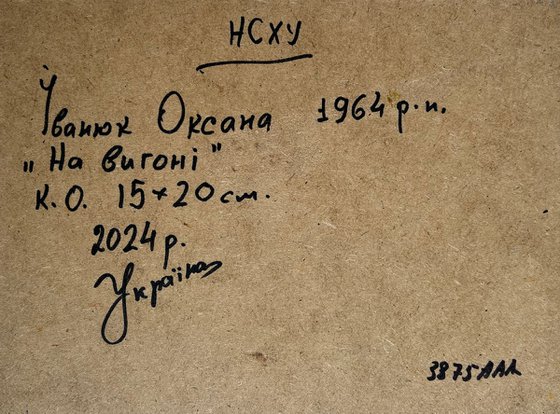 НСХУ
Іванюк Оксана 1964 р.н.
„На вигоні"
К.О. 15×20 см.
2024 р.
Україна
3875 ААА